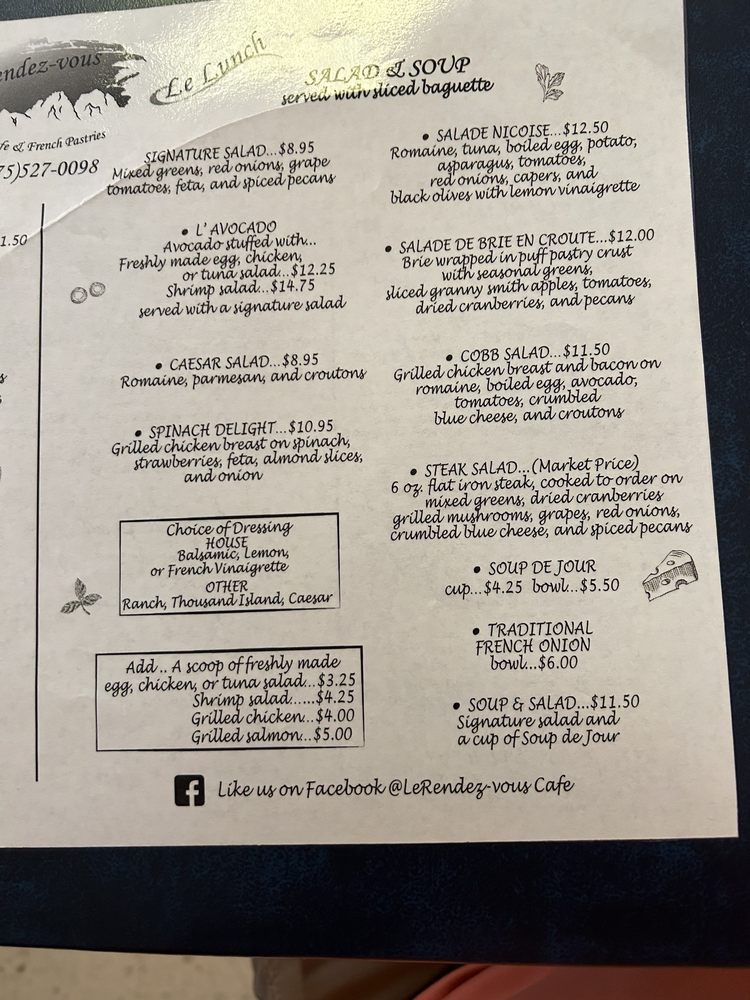 endez-vous
fe & French Pastries
75)527-0098
1.50
s
Le Lunch
SALAD & SOUP
served with sliced baguette
SIGNATURE SALAD...$8.95
Mixed greens, red onions, grape
tomatoes, feta, and spiced pecans
• L' AVOCADO
Avocado stuffed with...
Freshly made egg, chicken,
or tuna salad...$12.25
Shrimp salad...$14.75
served with a signature salad
• CAESAR SALAD...$8.95
Romaine, parmesan, and croutons
• SPINACH DELIGHT...$10.95
Grilled chicken breast on spinach,
strawberries, feta, almond slices,
and onion
Choice of Dressing
HOUSE
Balsamic, Lemon,
or French Vinaigrette
OTHER
Ranch, Thousand Island, Caesar
Add.. A scoop of freshly made
egg, chicken, or tuna salad...$3.25
Shrimp salad......$4.25
Grilled chicken...$4.00
Grilled salmon...$5.00
• SALADE NICOISE...$12.50
Romaine, tuna, boiled egg, potato,
asparagus, tomatoes,
red onions, capers, and
black olives with lemon vinaigrette
• SALADE DE BRIE EN CROUTE...$12.00
Brie wrapped in puff pastry crust
with seasonal greens,
sliced granny smith apples, tomatoes,
dried cranberries, and pecans
• COBB SALAD...$11.50
Grilled chicken breast and bacon on
romaine, boiled egg, avocado,
tomatoes, crumbled
blue cheese, and croutons
• STEAK SALAD...(Market Price)
6 oz. flat iron steak, cooked to order on
mixed greens, dried cranberries
grilled mushrooms, grapes, red onions,
crumbled blue cheese, and spiced pecans
• SOUP DE JOUR
cup...$4.25 bowl...$5.50
• TRADITIONAL
FRENCH ONION
bowl...$6.00
• SOUP & SALAD...$11.50
Signature salad and
a cup of Soup de Jour
Like us on Facebook @LeRendez-vous Cafe